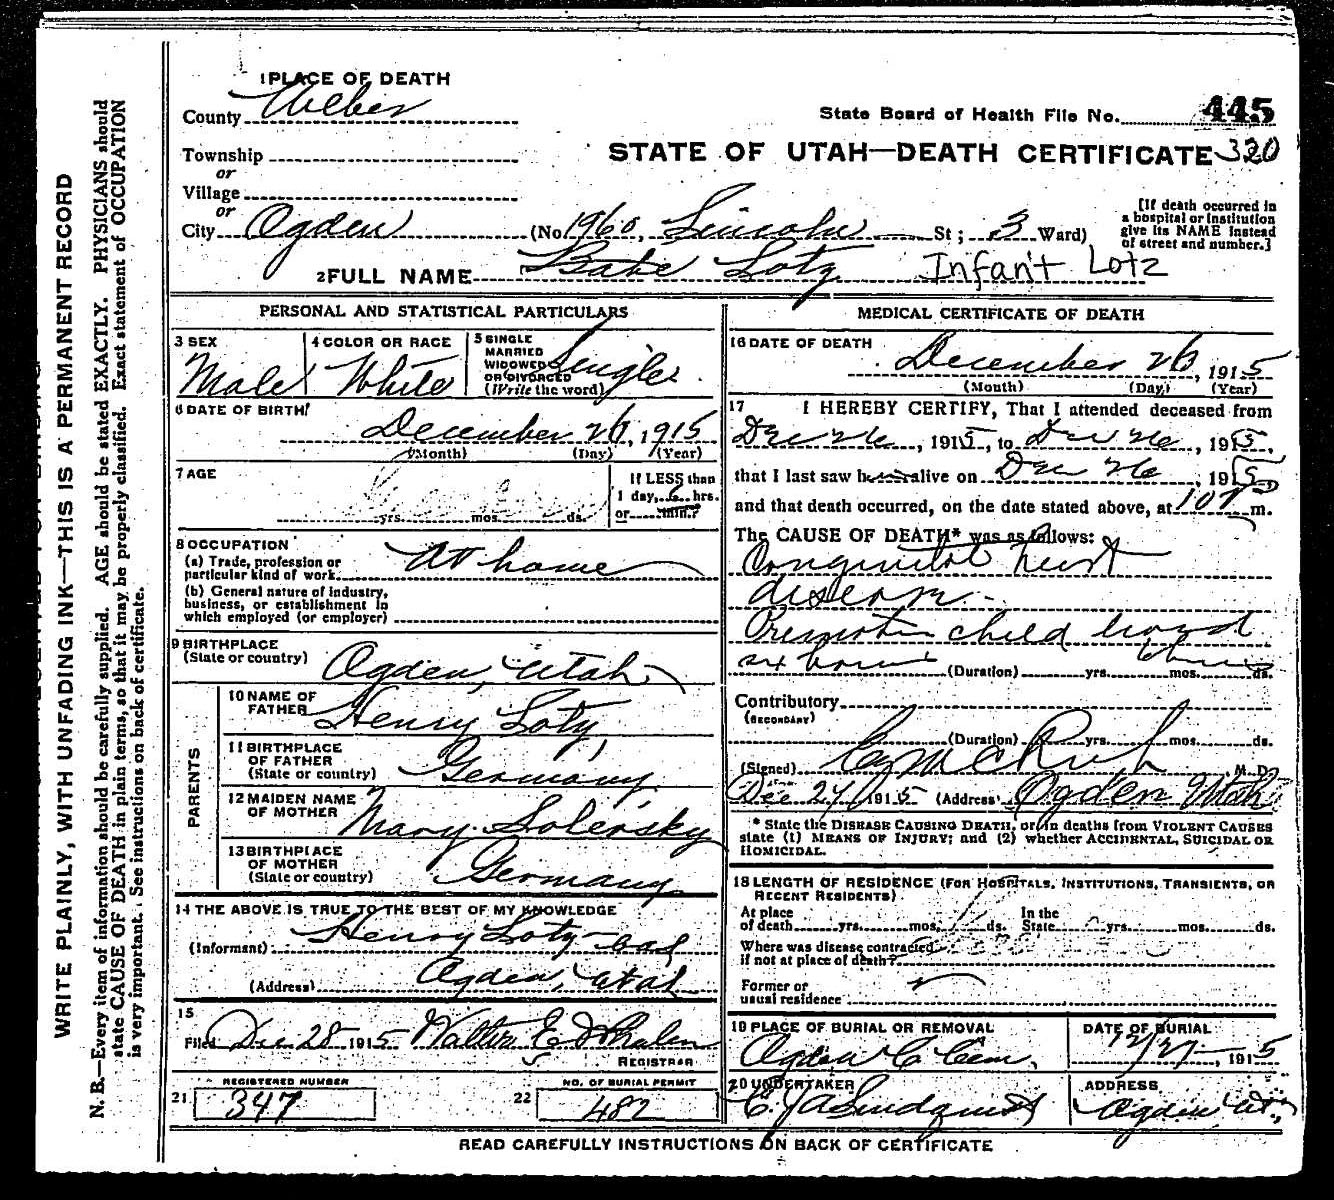 1 PLACE OF DEATH
County Weber
State Board of Health File No. 445
Township
or
Village
or
STATE OF UTAH—DEATH CERTIFICATE 320
City Ogden (No 1960, Lincoln St; 3 Ward)
[If death occurred in a hospital or institution give its NAME instead of street and number.]
2 FULL NAME Babe Lotz Infant Lotz
PERSONAL AND STATISTICAL PARTICULARS
3 SEX
Male
4 COLOR OR RACE
White
5 SINGLE
MARRIED
WIDOWED
OR DIVORCED
(Write the word)
Single
6 DATE OF BIRTH
December 26, 1915
(Month) (Day) (Year)
7 AGE
yrs. mos. ds.
If LESS than
1 day, 6 hrs.
or min.?
8 OCCUPATION
(a) Trade, profession or
particular kind of work
At home
(b) General nature of industry,
business, or establishment in
which employed (or employer)
9 BIRTHPLACE
(State or country)
Ogden, Utah
PARENTS
10 NAME OF
FATHER
Henry Lotz,
11 BIRTHPLACE
OF FATHER
(State or country)
Germany
12 MAIDEN NAME
OF MOTHER
Mary Solersky
13 BIRTHPLACE
OF MOTHER
(State or country)
Germany
14 THE ABOVE IS TRUE TO THE BEST OF MY KNOWLEDGE
(Informant) Henry Lotz
(Address) Ogden, Utah
15
Filed Dec 28 1915 Walter E Whalen
REGISTRAR
REGISTERED NUMBER
21 347
NO. OF BURIAL PERMIT
22 482
MEDICAL CERTIFICATE OF DEATH
16 DATE OF DEATH
December 26, 1915
(Month) (Day) (Year)
17 I HEREBY CERTIFY, That I attended deceased from
Dec 26, 1915, to Dec 26, 1915,
that I last saw h alive on Dec 26, 1915
and that death occurred, on the date stated above, at 10 m.
The CAUSE OF DEATH* was as follows:
Congenital heart
disease
Premature child lived
six hours (Duration) yrs. mos. ds.
Contributory
(SECONDARY)
(Duration) yrs. mos. ds.
(Signed) M. D.
Dec 27 1915 (Address) Ogden Utah
* State the DISEASE CAUSING DEATH, or, in deaths from VIOLENT CAUSES
state (1) MEANS OF INJURY; and (2) whether ACCIDENTAL, SUICIDAL OR
HOMICIDAL.
18 LENGTH OF RESIDENCE (FOR HOSPITALS, INSTITUTIONS, TRANSIENTS, OR
RECENT RESIDENTS)
At place
of death yrs. mos. ds.
In the
State yrs. mos. ds.
Where was disease contracted
if not at place of death?
Former or
usual residence
19 PLACE OF BURIAL OR REMOVAL
Ogden C Cem.
DATE OF BURIAL
12/27, 1915
20 UNDERTAKER
ADDRESS
Ogden Ut,
READ CAREFULLY INSTRUCTIONS ON BACK OF CERTIFICATE
WRITE PLAINLY, WITH UNFADING INK—THIS IS A PERMANENT RECORD
N. B.—Every item of information should be carefully supplied. AGE should be stated EXACTLY. PHYSICIANS should
state CAUSE OF DEATH in plain terms, so that it may be properly classified. Exact statement of OCCUPATION
is very important. See instructions on back of certificate.